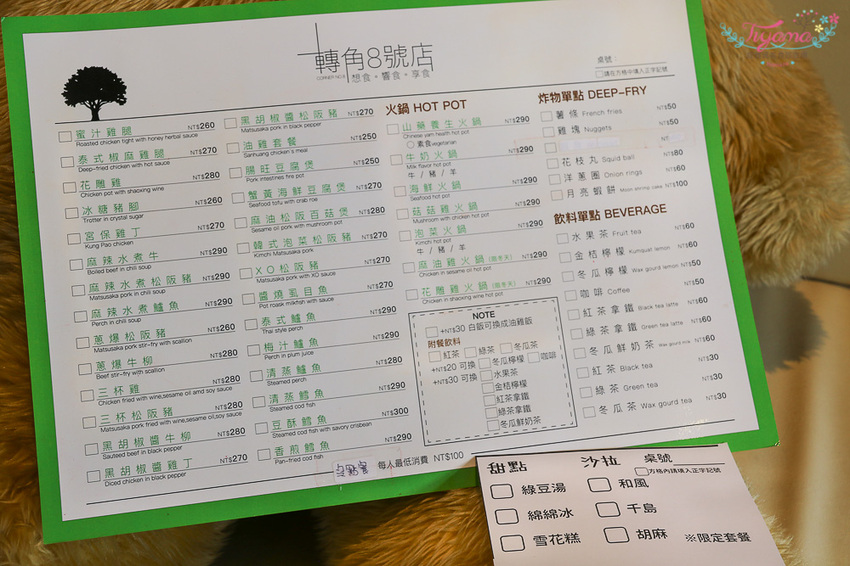 轉角8號店
CORNER NO.8
想食。響食。享食
桌號
請在方格中填入正字記號
蜜汁雞腿 NT$260
Roasted chicken tight with honey herbal sauce
泰式椒麻雞腿 NT$270
Deep-fried chicken with hot sauce
花雕雞 NT$280
Chicken pot with shaoxing wine
冰糖豬腳 NT$260
Trotter in crystal sugar
宮保雞丁 NT$270
Kung Pao chicken
麻辣水煮牛 NT$290
Boiled beef in chili soup
麻辣水煮松阪豬 NT$290
Matsusaka pork in chili soup
麻辣水煮鱸魚 NT$290
Perch in chili soup
蔥爆松阪豬 NT$290
Matsusaka pork stir-fry with scallion
蔥爆牛柳 NT$280
Beef stir-fry with scallion
三杯雞 NT$280
Chicken fried with wine,sesame oil amd soy sauce
三杯松阪豬 NT$280
Matsusaka pork fried with wine,sesame oil,soy sauce
黑胡椒醬牛柳 NT$280
Sauteed beef in black pepper
黑胡椒醬雞丁 NT$270
Diced chicken in black pepper
黑胡椒醬松阪豬 NT$270
Matsusaka pork in black pepper
油雞套餐 NT$250
Sanhuang chicken s meal
腸旺豆腐煲 NT$250
Pork intestines fire pot
蟹黃海鮮豆腐煲 NT$270
Seafood tofu with crab roe
麻油松阪百菇煲 NT$280
Sesame oil pork with mushroom pot
韓式泡菜松阪豬 NT$270
Kimchi Matsusaka pork
XO松阪豬 NT$270
Matsusaka pork with XO sauce
醬燒虱目魚 NT$270
Pot roask milkfish with sauce
泰式鱸魚 NT$290
Thai style perch
梅汁鱸魚 NT$290
Perch in plum juice
清蒸鱸魚 NT$290
Steamed perch
清蒸鱈魚 NT$290
Steamed cod fish
豆酥鱈魚 NT$300
Steamed cod fish with savory crisbean
香煎鱈魚 NT$290
Pan-fried cod fish
每人最低消費 NT$100
火鍋 HOT POT
山藥養生火鍋 NT$290
Chinese yam health hot pot
素食vegetarian
牛奶火鍋 NT$290
Milk flavor hot pot
牛 / 豬 / 羊
海鮮火鍋 NT$290
Seafood hot pot
菇菇雞火鍋 NT$290
Mushroom with chicken hot pot
泡菜火鍋 NT$290
Kimchi hot pot
牛 / 豬 / 羊
麻油雞火鍋(限冬天) NT$290
Chicken in sesame oil hot pot
花雕雞火鍋(限冬天) NT$290
Chicken in shaoxing wine hot pot
NOTE
+NT$30 白飯可換成油雞飯
附餐飲料
紅茶 綠茶 冬瓜茶
+NT$20 可換 冬瓜檸檬 咖啡
+NT$30 可換 水果茶
金桔檸檬
紅茶拿鐵
綠茶拿鐵
冬瓜鮮奶茶
炸物單點 DEEP-FRY
薯條 French fries NT$50
雞塊 Nuggets NT$50
花枝丸 Squid ball NT$80
洋蔥圈 Onion rings NT$60
月亮蝦餅 Moon shrimp cake NT$100
飲料單點 BEVERAGE
水果茶 Fruit tea NT$60
金桔檸檬 Kumquat lemon NT$60
冬瓜檸檬 Wax gourd lemon NT$50
咖啡 Coffee NT$50
紅茶拿鐵 Black tea latte NT$60
綠茶拿鐵 Green tea latte NT$60
冬瓜鮮奶茶 Wax gourd milk NT$60
紅茶 Black tea NT$30
綠茶 Green tea NT$30
冬瓜茶 Wax gourd tea NT$30
甜點 沙拉 桌號
方格內請填入正字記號
綠豆湯 和風
綿綿冰 千島
雪花糕 胡麻 ※限定套餐